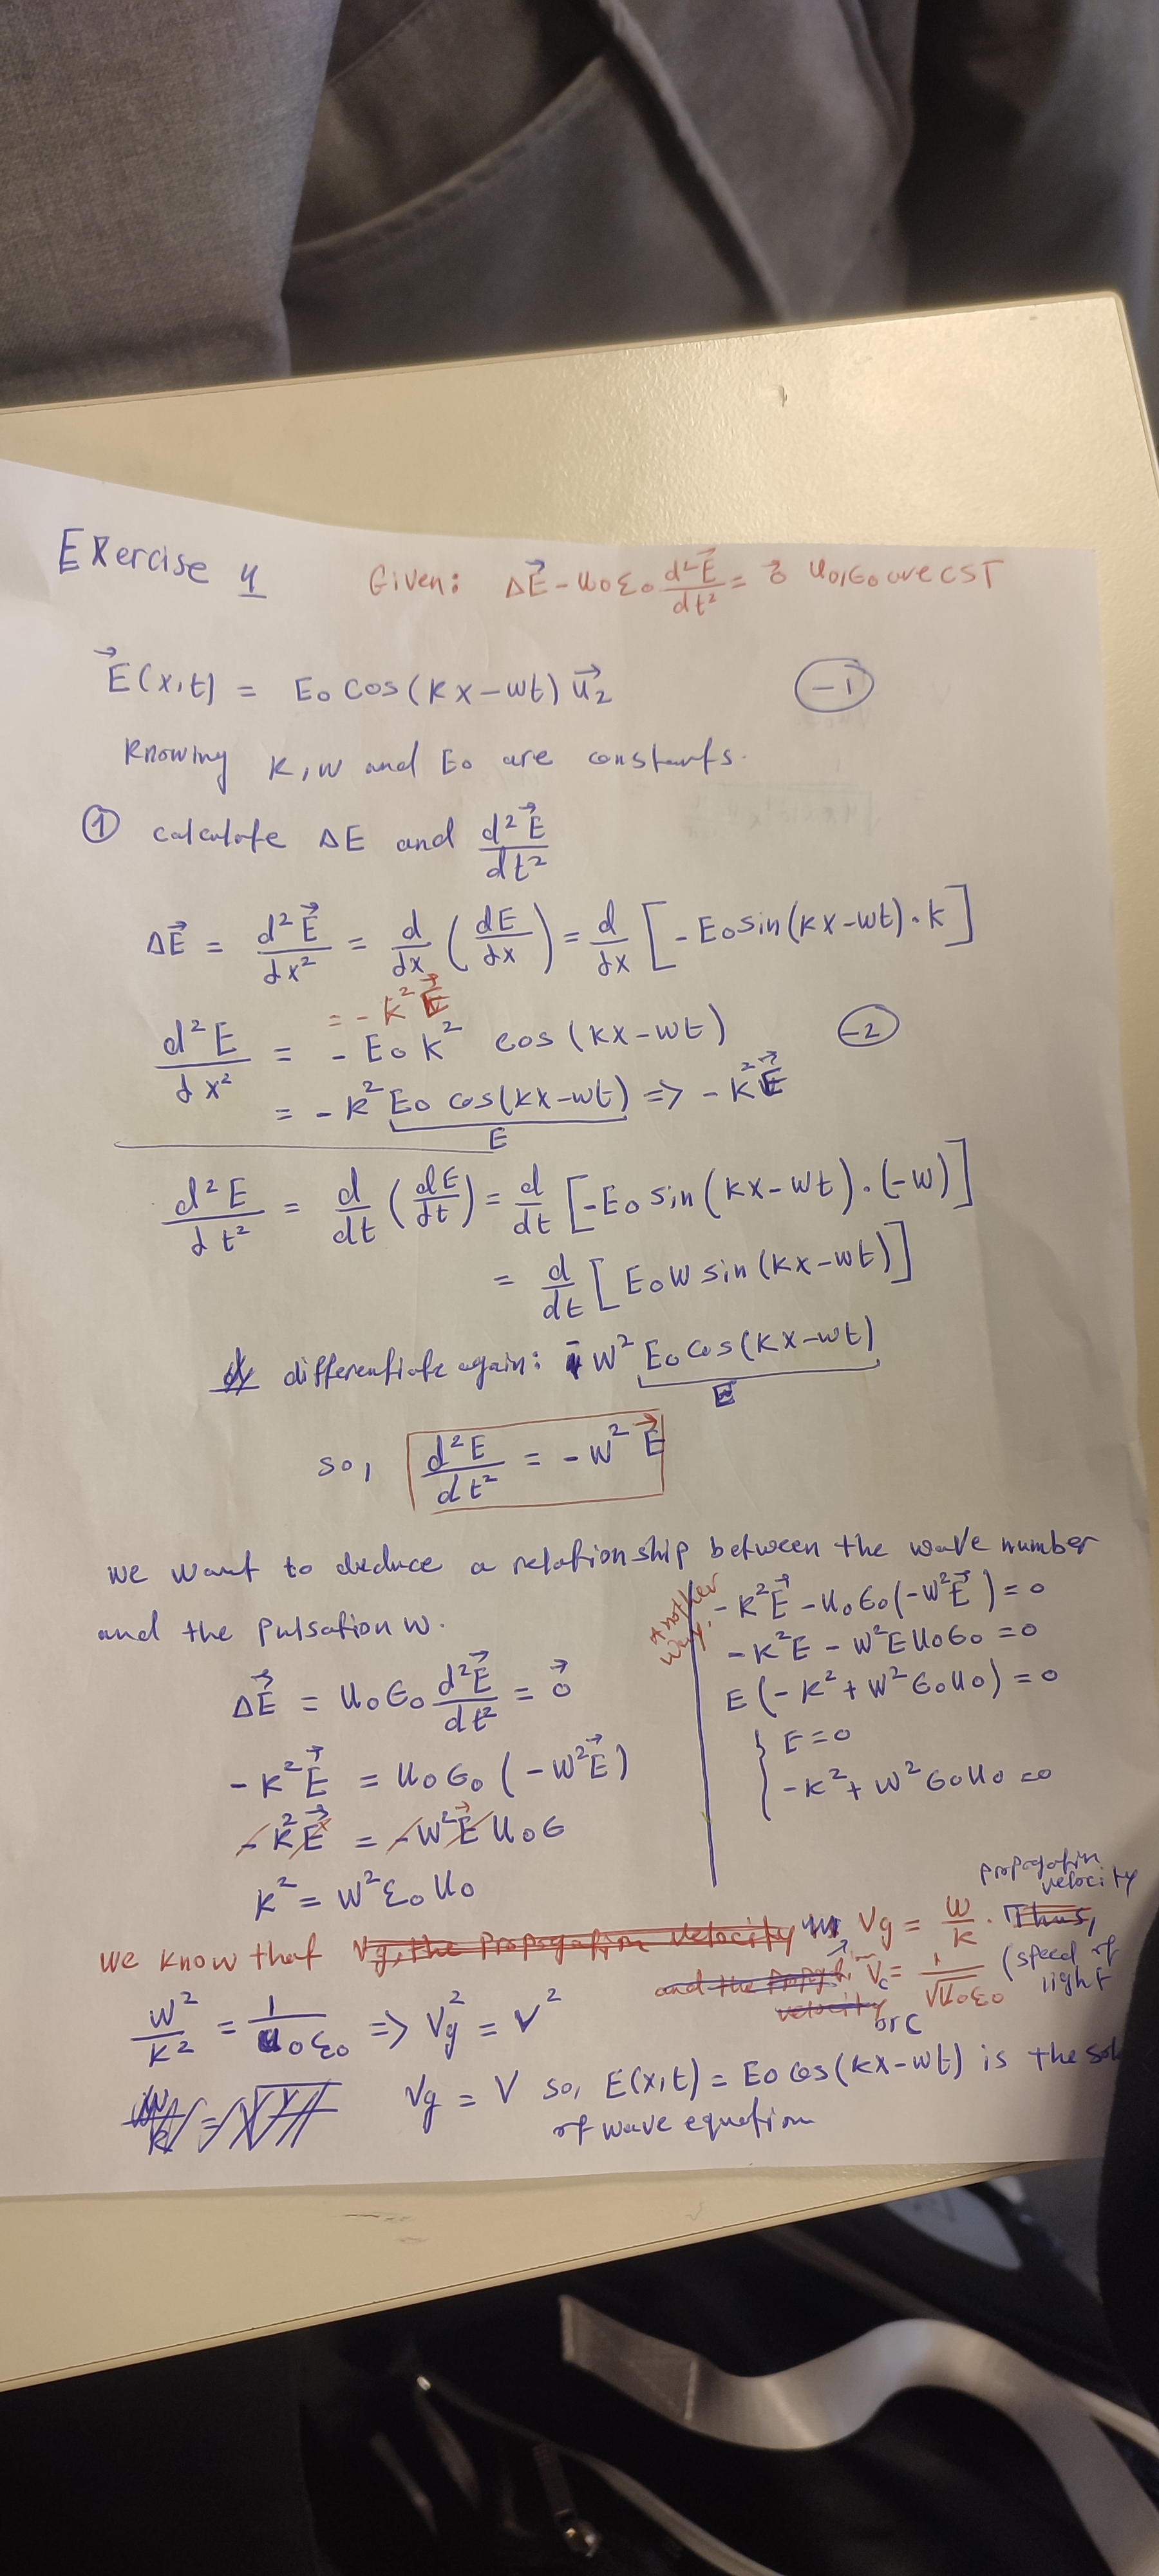 Exercise 4
Given: ΔE⃗ - u0ε0 d²E⃗/dt² = 0⃗ u0,ϵ0 are CST
E⃗(x,t) = E0 cos(kx-wt) u⃗2 -1
Knowing k,w and E0 are constants.
① calculate ΔE and d²E⃗/dt²
ΔE⃗ = d²E⃗/dx² = d/dx (dE/dx) = d/dx [-E0 sin(kx-wt)·k]
= -k²E⃗
d²E/dx² = -E0 k² cos(kx-wt) -2
= -k² E0 cos(kx-wt) => -k²E⃗
E
d²E/dt² = d/dt (dE/dt) = d/dt [-E0 sin(kx-wt)·(-w)]
= d/dt [E0 w sin(kx-wt)]
differentiate again: - w² E0 cos(kx-wt)
E
so, d²E/dt² = -w² E⃗
we want to deduce a relationship between the wave number
and the pulsation w.
ΔE⃗ = u0ϵ0 d²E⃗/dt² = 0⃗
-k²E⃗ = u0ϵ0 (-w²E⃗)
-k²E⃗ = -w²E⃗ u0ϵ
k² = w²ε0u0
Another way.
-k²E⃗ - u0ϵ0(-w²E⃗) = 0
-k²E - w²E u0ϵ0 = 0
E(-k² + w²ϵ0u0) = 0
{ E = 0
-k² + w²ϵ0u0 = 0
propagation velocity
we know that Vg, the propagation velocity Vg = w/k. Thus,
and the velocity Vc = 1/√u0ε0 (speed of light
or c
w²/k² = 1/u0ε0 => Vg² = V²
Vg = V so, E(x,t) = E0 cos(kx-wt) is the sol
of wave equation